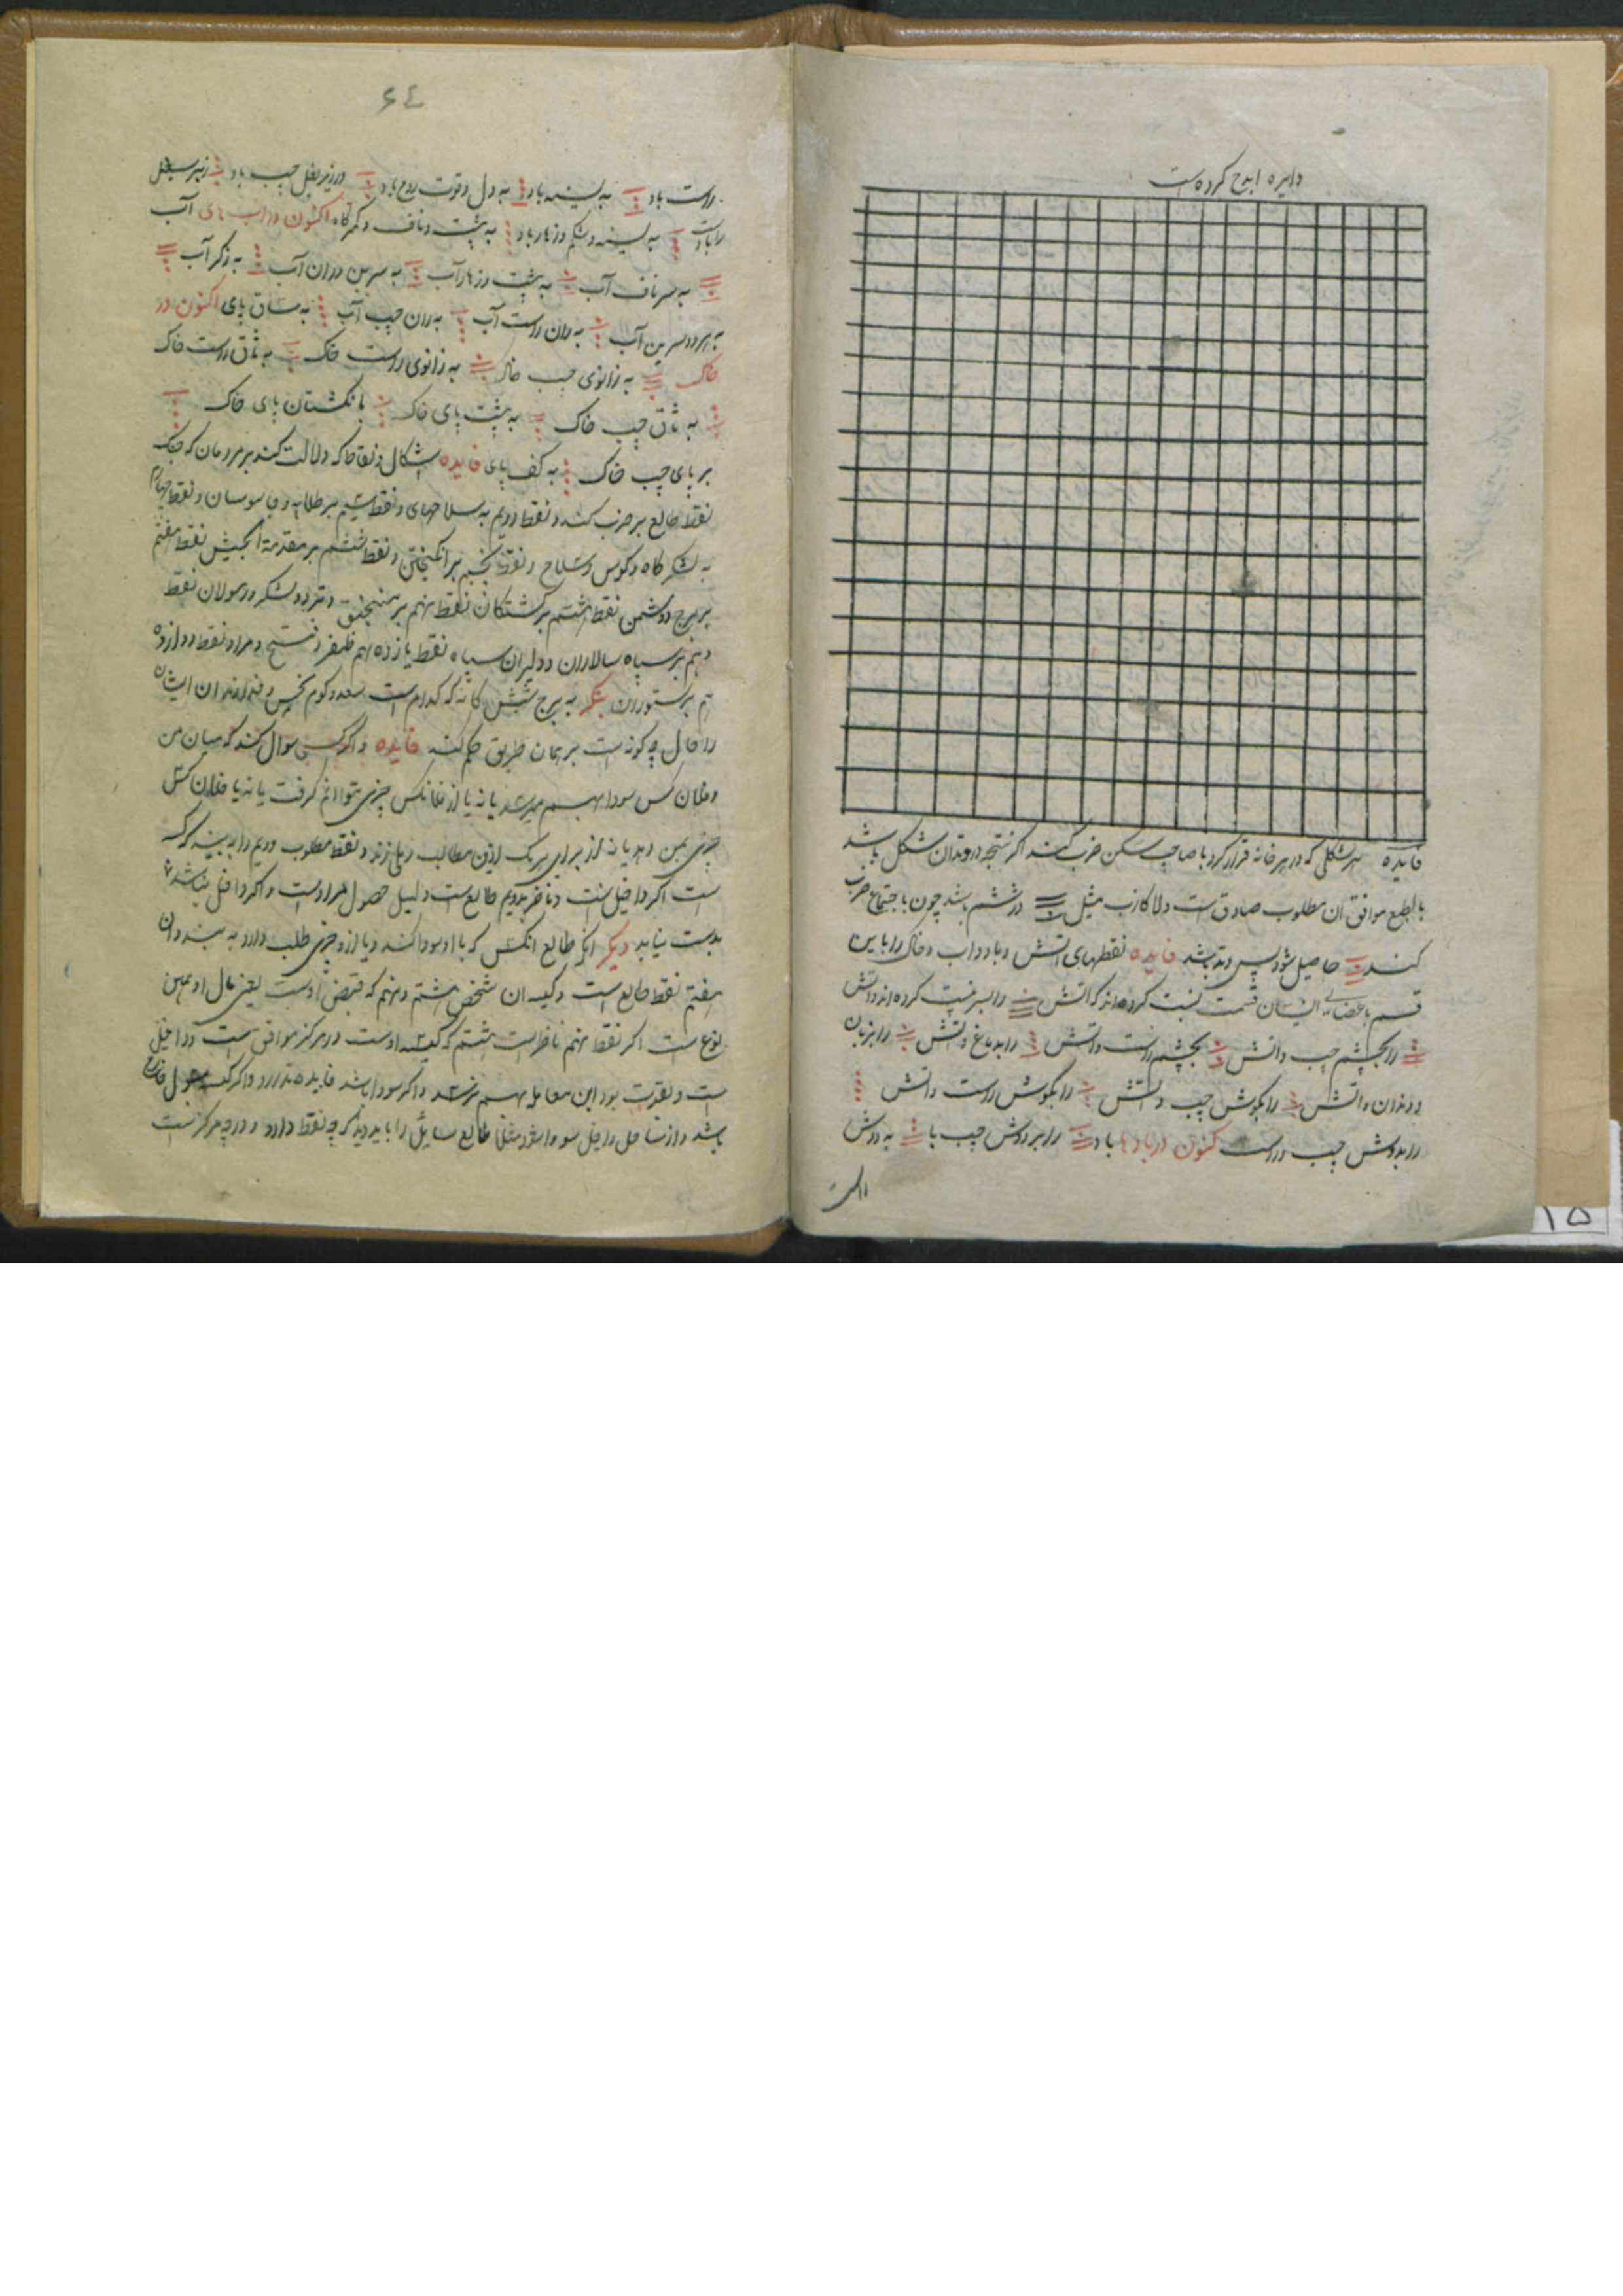 دایره ابدح کرده است
فایده هر شکلی که در هر خانه قرار کرد با صاحب سکن ضرب کند اگر نتیجه در وتد ان شکل باشد
بالطبع موافق ان مطلوب صادق است والا کاذب مثل در ششم باشد چون باجتماع ضرب
کنند حاصل شود پس وتد باشد فایده نقطهای اتش و باد و اب و خاک را باین
قسم باعضای انسان قسمت نسبت کرده اند که اتش را بسر نسبت کرده اند و اتش
را بچشم چپ و اتش بچشم راست و اتش را بدماغ و اتش را بزبان
و دندان و اتش را بکوش چپ و اتش را بکوش راست و اتش
را بدوش چپ و راست کنون در بادها باد را بر دوش چپ با به دوش
راست باد به سینه باد به دل و قوت روح باد در زیر بغل چپ باد زیر بغل
راباد به سینه و شکم و زهار باد به پشت و ناف و کمرگاه اکنون در اب های آب
به سر ناف آب به پشت و زهار آب به سرین و ران آب به ذکر آب
به هر دو سرین آب به ران راست آب به ران چپ آب به ساق پای اکنون در
خاک به زانوی چپ خاک به زانوی راست خاک به ثاق راست خاک
به ثاق چپ خاک به پشت پای خاک بانکشتان پای خاک
بر پای چپ خاک به کف پای فایده اشکال و نقاط که دلالت کند بر مردمان که جنک
نقطه طالع بر حرب کند و نقط دویم به سلاحهای و نقط سیم بر طلایه و جاسوسان و نقط چهارم
به لشکرکاه و کوس و سلاح و نقط پنجم بر انکیختن و نقط ششم بر مقدمة الجیش نقط هفتم
بر برج و دشمن نقط هشتم بر کشتکان نقط نهم بر منجنیق و تردد لشکر و رسولان نقط
دهم بر سپاه سالاران و دلیران سپاه نقط یازدهم ظفر و فتح و مراد و نقط دوازده
هم بر ستوران بنکر به برج شش کانه که کدام است سعد و کدام نحس و خداوندان ایشان
را حال چه کونه است بر همان طریق حکم کند فایده و اگر کسی سوال کند که میان من
و فلان کس سودا بهم میرسد یا نه یا از فلانکس چیزی توانم کرفت یا نه یا فلان کس
چیزی بمن دهد یا نه از برای هر یک ازین مطالب رملی زند و نقط مطلوب دویم را به بیند که
است اگر داخل است و ناظر بدویم طالع است دلیل حصول مراد است و اگر داخل نباشد
بدست نیاید دیکر انکه طالع انکس که با او سودا کند و یا از و چیزی طلب دارد به بیند و ان
هفتم نقط طالع است و کیسه ان شخص هشتم و نهم که قبض اوست یعنی مال او بهمین
نوع است اگر نقط نهم ناظر است هشتم که کیسه اوست در مرکز موافق است و داخل
است و بقوت بود این معامله بهم نرسد و اگر سودا باشد فایده ندارد و اگر
باشد و از سا طالع سایل را باید دید که چه نقط دارد و در چه مرکز است